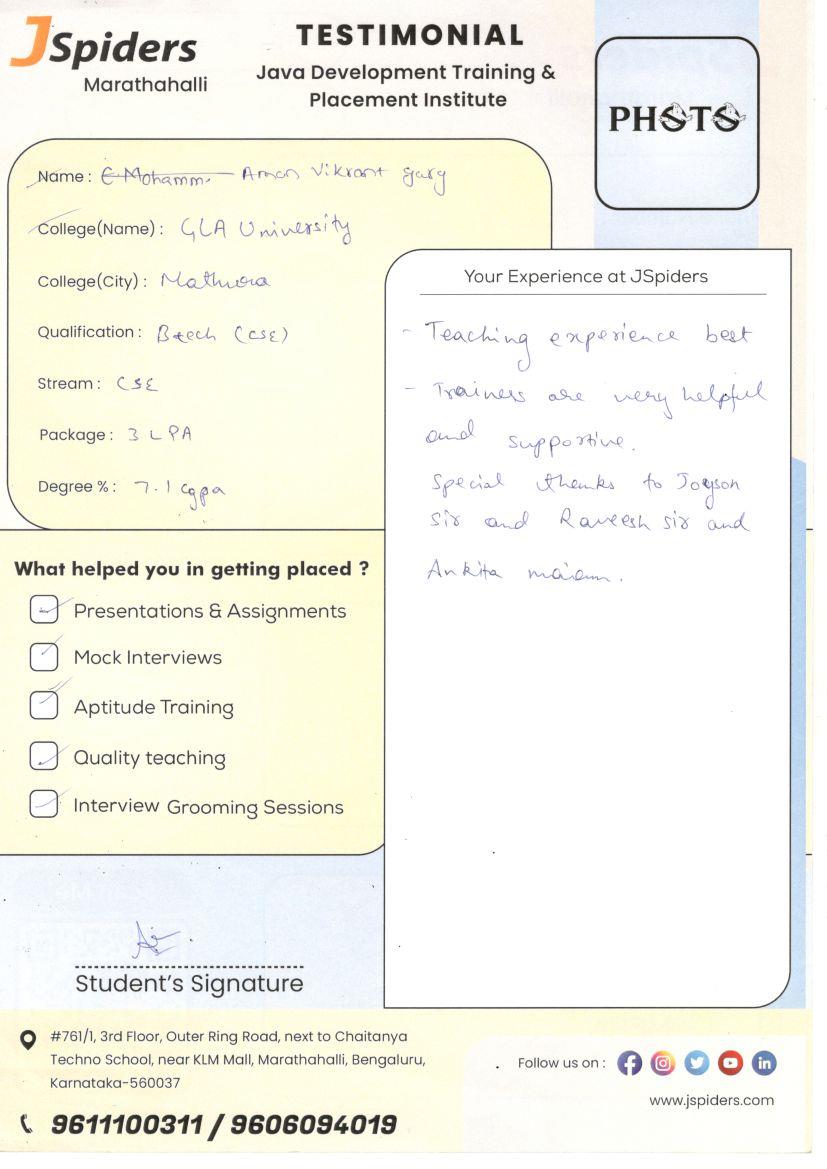 JSpiders
Marathahalli
TESTIMONIAL
Java Development Training &
Placement Institute
PHOTO
Name : E Mohamm. Aman Vikrant Garg
College(Name) : GLA University
College(City) : Mathura
Qualification : Btech (CSE)
Stream : CSE
Package : 3 LPA
Degree % : 7.1 cgpa
Your Experience at JSpiders
- Teaching experience best
- Trainers are very helpful
and supportive.
Special thanks to Joyson
sir and Raveesh sir and
Ankita ma'am.
What helped you in getting placed ?
Presentations & Assignments
Mock Interviews
Aptitude Training
Quality teaching
Interview Grooming Sessions
Student's Signature
#761/1, 3rd Floor, Outer Ring Road, next to Chaitanya
Techno School, near KLM Mall, Marathahalli, Bengaluru,
Karnataka-560037
9611100311 / 9606094019
Follow us on :
www.jspiders.com